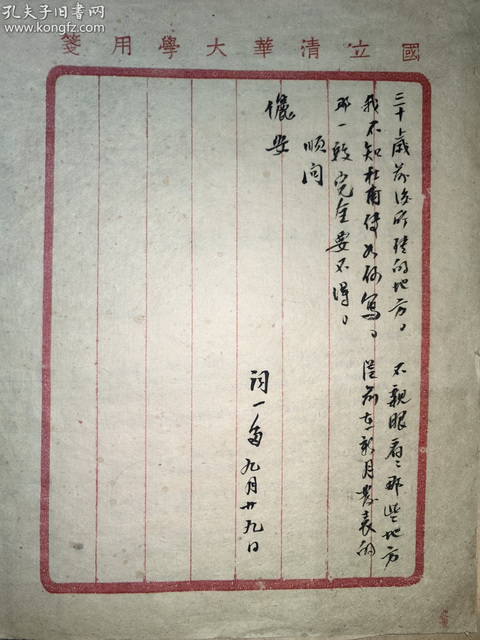 孔夫子旧書网
www.kongfz.com
國立清華大學用箋
三十歲前後所住的地方。不親眼看看那些地方
我不知杜甫傳如何寫。從前在新月發表的
那一段完全要不得。
順問
儷安
聞一多 九月廿九日